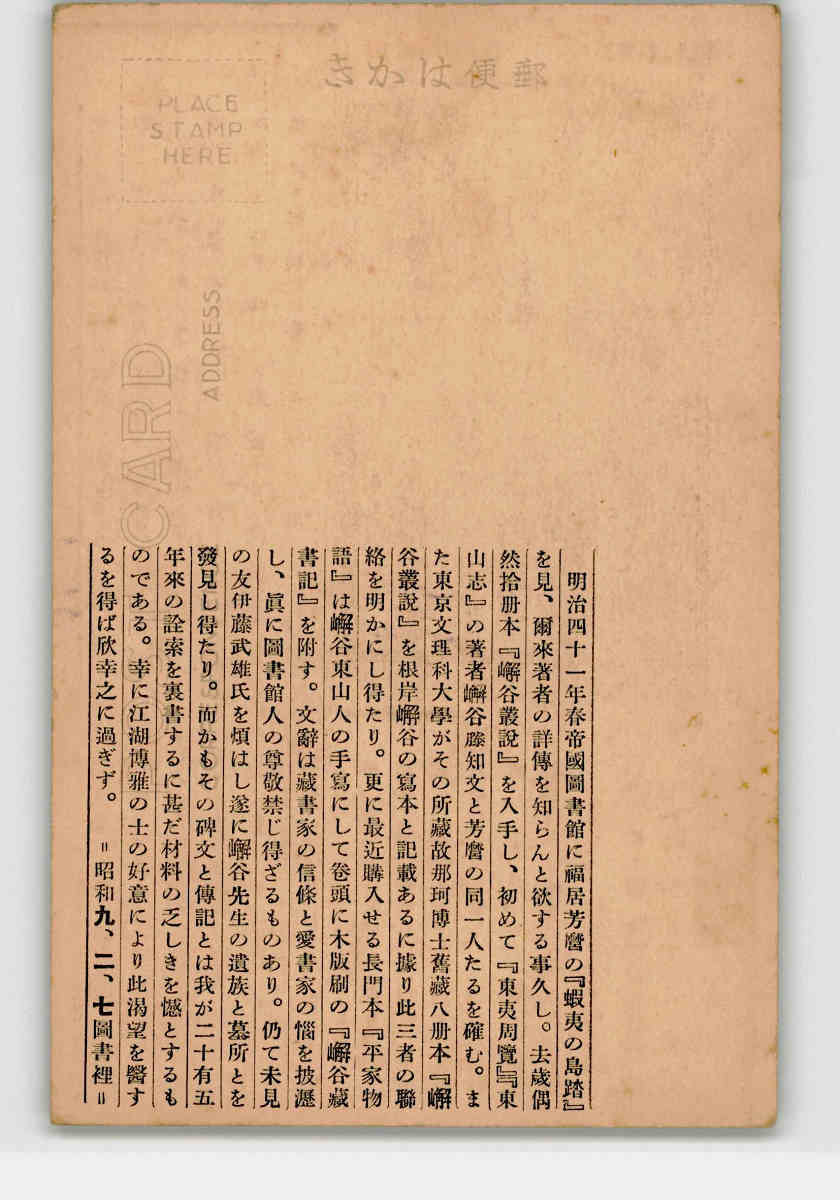 郵便はかき
PLACE
STAMP
HERE
CARD
ADDRESS
明治四十一年春帝國圖書館に福居芳麿の『蝦夷の島踏』
を見、爾來著者の詳傳を知らんと欲する事久し。去歲偶
然拾册本『嶰谷叢說』を入手し、初めて『東夷周覽』『東
山志』の著者嶰谷滕知文と芳麿の同一人たるを確む。ま
た東京文理科大學がその所藏故那珂博士舊藏八册本『嶰
谷叢說』を根岸嶰谷の寫本と記載あるに據り此三者の聯
絡を明かにし得たり。更に最近購入せる長門本『平家物
語』は嶰谷東山人の手寫にして卷頭に木版刷の『嶰谷藏
書記』を附す。文辭は藏書家の信條と愛書家の惱を披瀝
し、眞に圖書館人の尊敬禁じ得ざるものあり。仍て未見
の友伊藤武雄氏を煩はし遂に嶰谷先生の遺族と墓所とを
發見し得たり。而かもその碑文と傳記とは我が二十有五
年來の詮索を裏書するに甚だ材料の乏しきを憾とするも
のである。幸に江湖博雅の士の好意により此渴望を醫す
るを得ば欣幸之に過ぎず。 =昭和九、二、七圖書裡=